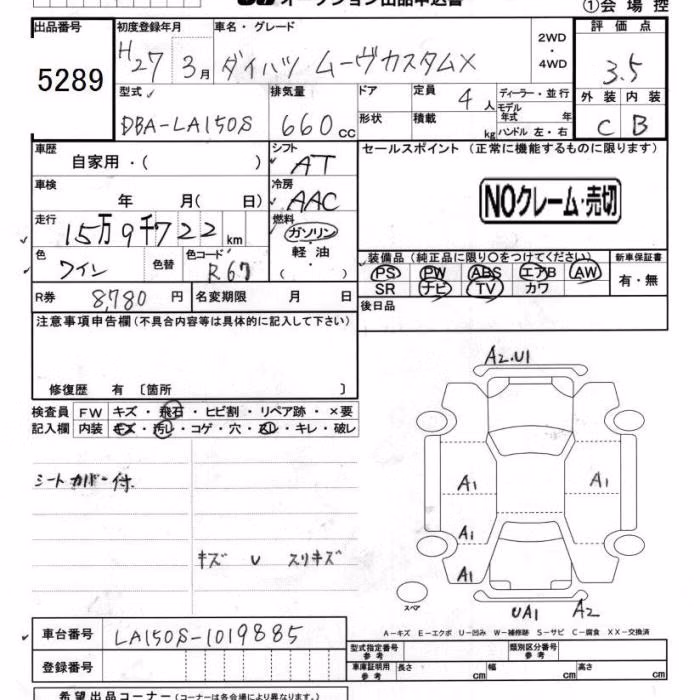 オークション出品申込書
①会場控
出品番号
5289
初度登録年月
H27 3月
車名・グレード
ダイハツ ムーヴカスタムX
2WD
・
4WD
評価点
3.5
外装 内装
C B
型式
DBA-LA150S
排気量
660cc
ドア
形状
定員
4人
積載
kg
ディーラー・並行
モデル年式 年
ハンドル 左・右
車歴
自家用・( )
シフト
AT
車検
年 月( 日)
冷房
AAC
走行
15万9千722km
燃料
ガソリン
・
軽油
・
( )
色
ワイン
色替
色コード
R67
R券
8,780円
名変期限 月 日
セールスポイント(正常に機能するものに限ります)
NOクレーム・売切
装備品(純正品に限り○をつけてください)
PS PW ABS エアB AW
SR ナビ TV カワ
新車保証書
有・無
後日品
注意事項申告欄(不具合内容等は具体的に記入して下さい)
修復歴 有 [箇所 ]
検査員
記入欄
FW キズ・飛石・ヒビ割・リペア跡・×要
内装 キズ・汚レ・コゲ・穴・スレ・キレ・破レ
シートカバー付
キズ V スリキズ
A2.U1
A1
A1
A1
A1
スペア
UA1 A2
A-キズ E-エクボ U-凹み W-補修跡 S-サビ C-腐食 XX-交換済
車台番号
LA150S-1019885
登録番号
型式指定番号
参考
類別区分番号
参考
車庫証明用
参考
長さ cm 幅 cm 高さ cm
希望出品コーナー(コーナーは各会場により異なります。)